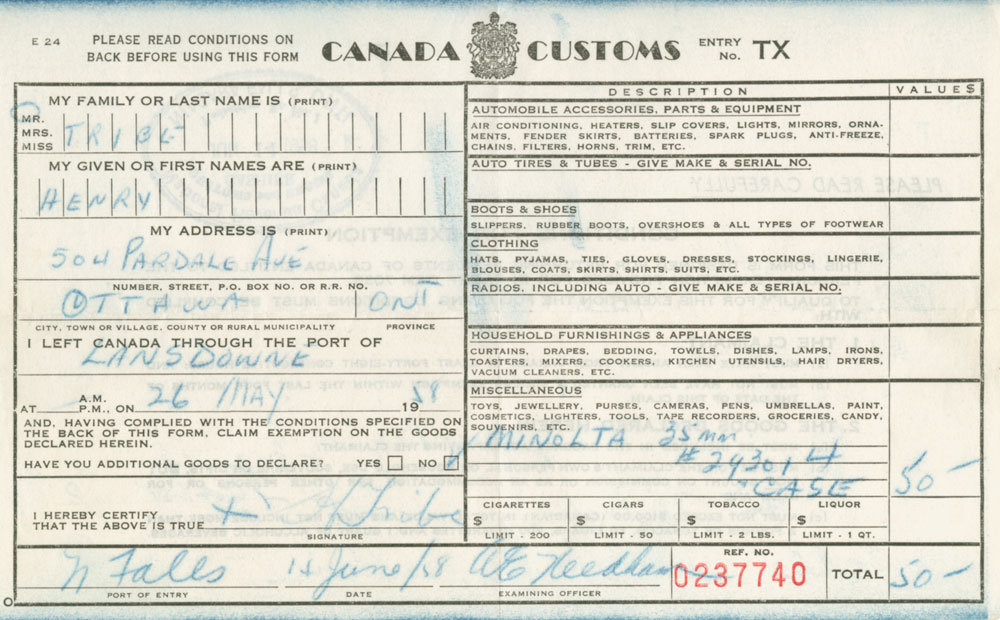 E 24
PLEASE READ CONDITIONS ON
BACK BEFORE USING THIS FORM
CANADA CUSTOMS
ENTRY
No. TX
MY FAMILY OR LAST NAME IS (PRINT)
MR.
MRS.
MISS
TRIBE
MY GIVEN OR FIRST NAMES ARE (PRINT)
HENRY
MY ADDRESS IS (PRINT)
504 PARDALE AVE
NUMBER, STREET, P.O. BOX NO. OR R.R. NO.
OTTAWA ONT
CITY, TOWN OR VILLAGE, COUNTY OR RURAL MUNICIPALITY PROVINCE
I LEFT CANADA THROUGH THE PORT OF
LANSDOWNE
A.M.
AT P.M., ON 26 MAY 1958
AND, HAVING COMPLIED WITH THE CONDITIONS SPECIFIED ON
THE BACK OF THIS FORM, CLAIM EXEMPTION ON THE GOODS
DECLARED HEREIN.
HAVE YOU ADDITIONAL GOODS TO DECLARE? YES NO
I HEREBY CERTIFY
THAT THE ABOVE IS TRUE
Tribe
SIGNATURE
DESCRIPTION VALUE $
AUTOMOBILE ACCESSORIES, PARTS & EQUIPMENT
AIR CONDITIONING, HEATERS, SLIP COVERS, LIGHTS, MIRRORS, ORNA-
MENTS, FENDER SKIRTS, BATTERIES, SPARK PLUGS, ANTI-FREEZE,
CHAINS, FILTERS, HORNS, TRIM, ETC.
AUTO TIRES & TUBES - GIVE MAKE & SERIAL NO.
BOOTS & SHOES
SLIPPERS, RUBBER BOOTS, OVERSHOES & ALL TYPES OF FOOTWEAR
CLOTHING
HATS, PYJAMAS, TIES, GLOVES, DRESSES, STOCKINGS, LINGERIE,
BLOUSES, COATS, SKIRTS, SHIRTS, SUITS, ETC.
RADIOS, INCLUDING AUTO - GIVE MAKE & SERIAL NO.
HOUSEHOLD FURNISHINGS & APPLIANCES
CURTAINS, DRAPES, BEDDING, TOWELS, DISHES, LAMPS, IRONS,
TOASTERS, MIXERS, COOKERS, KITCHEN UTENSILS, HAIR DRYERS,
VACUUM CLEANERS, ETC.
MISCELLANEOUS
TOYS, JEWELLERY, PURSES, CAMERAS, PENS, UMBRELLAS, PAINT,
COSMETICS, LIGHTERS, TOOLS, TAPE RECORDERS, GROCERIES, CANDY,
SOUVENIRS, ETC.
MINOLTA 35mm
#243014
CASE 50-
CIGARETTES CIGARS TOBACCO LIQUOR
$ $ $ $
LIMIT - 200 LIMIT - 50 LIMIT - 2 LBS. LIMIT - 1 QT.
N Falls 14 June/58 Needham
PORT OF ENTRY DATE EXAMINING OFFICER
REF. NO.
0237740
TOTAL 50-